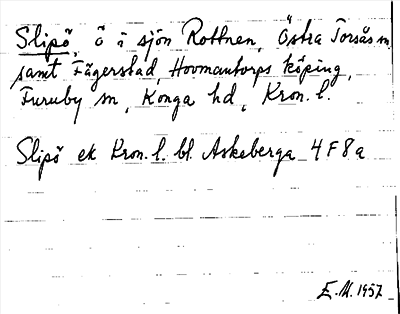 Slipö, ö i sjön Rottnen, Östra Torsås sn
samt Fägerstad, Hovmantorps köping,
Furuby sn, Konga hd, Kron. l.
Slipö ek Kron. l. bl. Askeberga 4 F 8 a
E.M. 1957